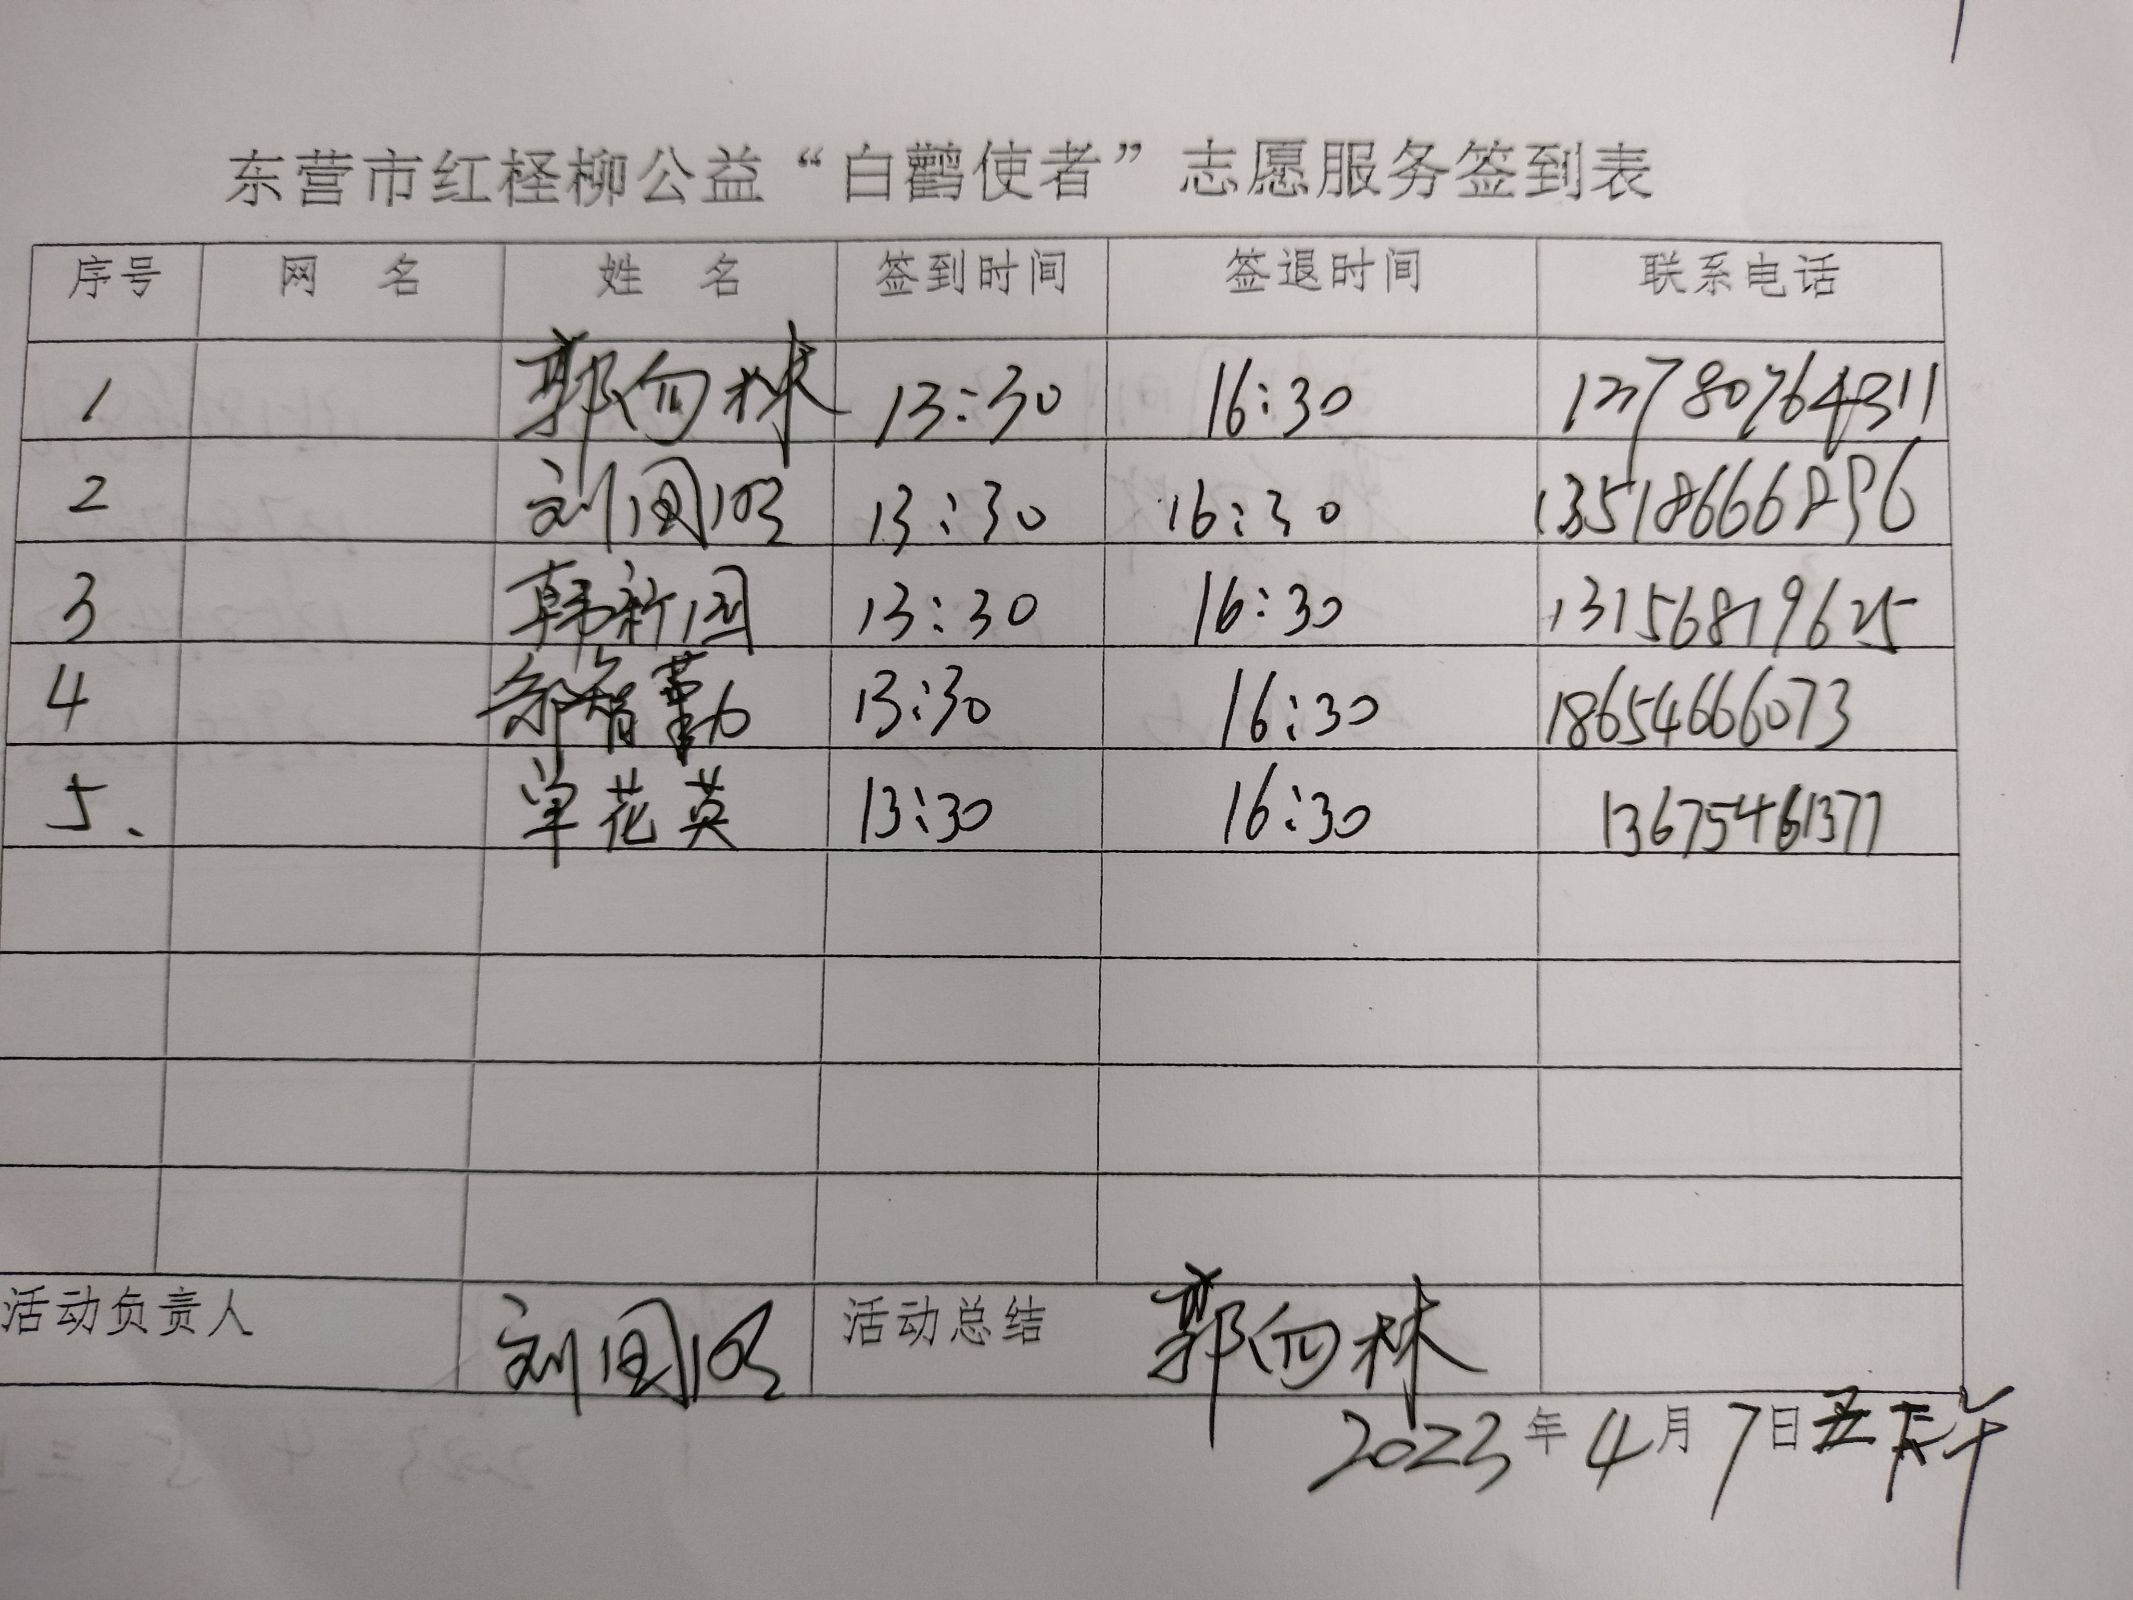 东营市红柽柳公益“白鹳使者”志愿服务签到表
序号 网 名 姓 名 签到时间 签退时间 联系电话
1 郭向林 13:30 16:30
2 刘国明 13:30 16:30 13518666896
3 韩新国 13:30 16:30 13156819625
4 13:30 16:30 18654666073
5. 单花英 13:30 16:30 13675461377
活动负责人 刘国明 活动总结 郭向林
2023年4月7日五下午